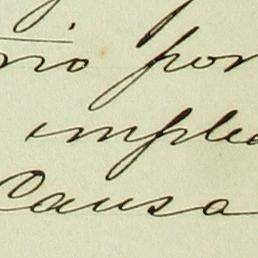 rio por
emplea
Causa